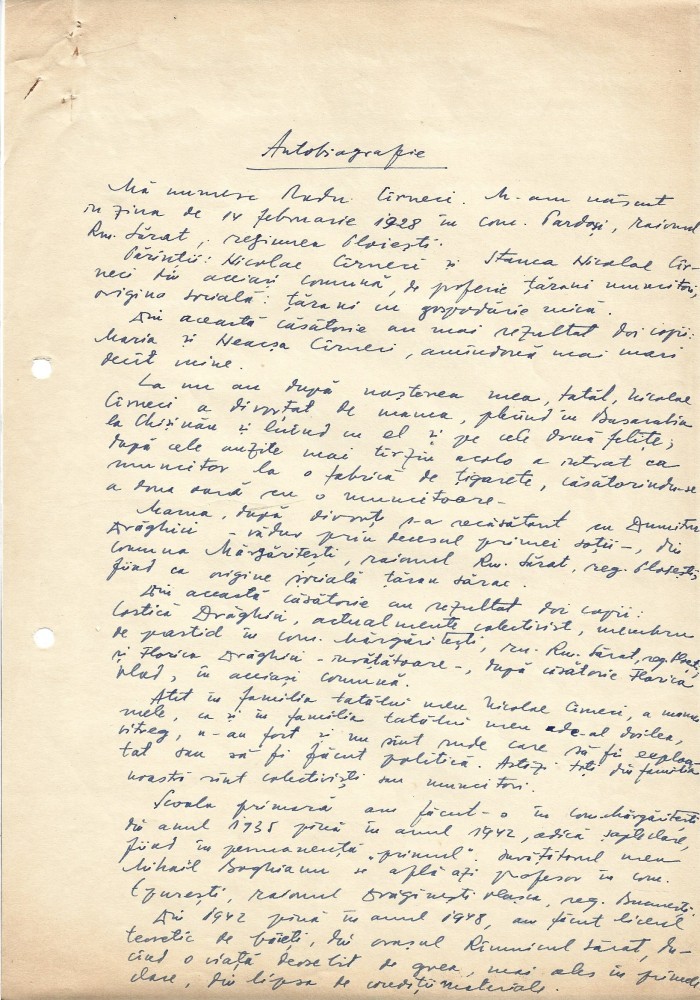 Autobiografie
Mă numesc Radu Cîrneci. M-am născut
in ziua de 14 februarie 1928 în com. Pardoşi, raionul
Rm. Sărat, regiunea Ploieşti.
Părinţii: Nicolae Cîrneci şi Stanca Nicolae Cîr-
neci din aceiaşi comună, de profesie ţărani muncitori,
origina socială: ţărani cu gospodărie mică.
Din această căsătorie au mai rezultat doi copii:
Maria şi Neacşa Cîrneci, amîndouă mai mari
decît mine.
La un an după naşterea mea, tatăl, Nicolae
Cîrneci a divorţat de mama, plecînd în Basarabia
la Chişinău şi luînd cu el şi pe cele două fetiţe;
după cele auzite mai tîrziu acolo a intrat ca
muncitor la o fabrică de ţigarete, căsătorindu-se
a doua oară cu o muncitoare.
Mama, după divorţ, s-a recăsătorit cu Dumitru
Drăghici - văduv prin decesul primei soţii -, din
comuna Mărgăriteşti, raionul Rm. Sărat, reg. Ploieşti
fiind ca origine socială ţăran sărac.
Din această căsătorie au rezultat doi copii:
Costică Drăghici, actualmente colectivist, membru
de partid în com. Mărgăriteşti, rn. Rm. Sărat, reg. Ploieşti,
şi Florica Drăghici - învăţătoare -, după căsătorie Florica
Vlad, în aceiaşi comună.
Atît în familia tatălui meu Nicolae Cîrneci, a mamei
mele, ca şi în familia tatălui meu de-al doilea,
vitreg, n-au fost şi nu sînt rude care să fi exploa-
tat sau să fi făcut politică. Astăzi toţi din familia
noastră sînt colectivişti sau muncitori.
Şcoala primară am făcut-o în com. Mărgăriteşti
din anul 1935 pînă în anul 1942, adică şapte clase,
fiind în permanenţă „primul". Învăţătorul meu
Mihail Boghianu se află azi profesor în com.
raionul Drăgăneşti Vlaşca, reg. Bucureşti.
Din 1942 pînă în anul 1948, am făcut liceul
teoretic de băieţi, din oraşul Rîmnicul Sărat, du-
cînd o viaţă deosebit de grea, mai ales în primele
clase, din lipsa de condiţii materiale.